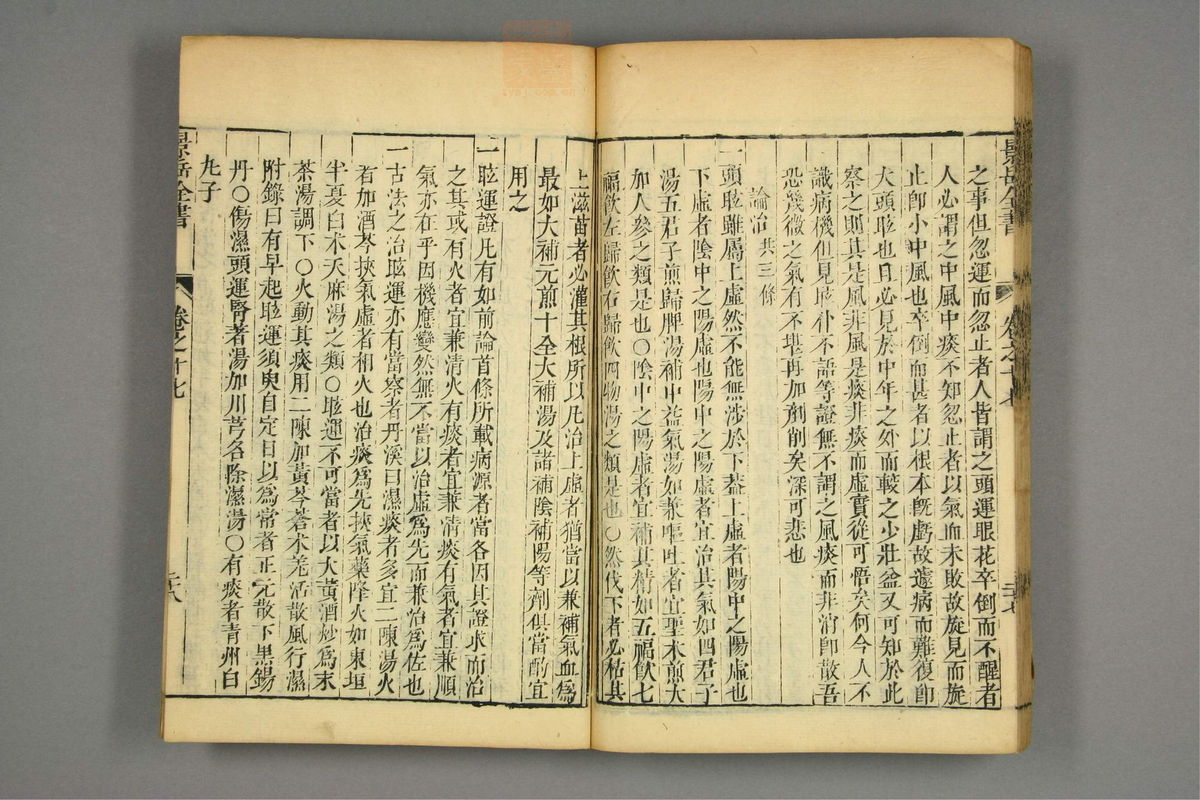 景岳全書
卷之十七
之事但忽運而忽止者人皆謂之頭運眼花卒倒而不醒者
人必謂之中風中痰不知忽止者以氣血未敗故旋見而旋
止卽小中風也卒倒而甚者以根本旣虧故遽病而難復卽
大頭眩也且必見於中年之外而較之少壯益又可知於此
察之則其是風非風是痰非痰而虛實從可悟矣何今人不
識病機但見眩仆不語等證無不謂之風痰而非消卽散吾
恐幾微之氣有不堪再加剷削矣深可悲也
論治共三條
一頭眩雖屬上虛然不能無涉於下葢上虛者陽中之陽虛也
下虛者陰中之陽虛也陽中之陽虛者宜治其氣如四君子
湯五君子煎歸脾湯補中益氣湯如兼嘔吐者宜聖术煎大
加人參之類是也○陰中之陽虛者宜補其精如五福飲七
福飲左歸飲右歸飲四物湯之類是也○然伐下者必枯其
上滋苗者必灌其根所以凡治上虛者猶當以兼補氣血爲
最如大補元煎十全大補湯及諸補陰補陽等劑俱當酌宜
用之
一眩運證凡有如前論首條所載病源者當各因其證求而治
之其或有火者宜兼淸火有痰者宜兼淸痰有氣者宜兼順
氣亦在乎因機應變然無不當以治虛爲先而兼治爲佐也
一古法之治眩運亦有當察者丹溪曰濕痰者多宜二陳湯火
者加酒芩挾氣虛者相火也治痰爲先挾氣藥降火如東垣
半夏白术天麻湯之類○眩運不可當者以大黃酒炒爲末
茶湯調下○火動其痰用二陳加黃芩蒼术羌活散風行濕
附錄曰有早起眩運須臾自定日以爲常者正元散下黑錫
丹○傷濕頭運腎者湯加川芎各除濕湯○有痰者青州白
丸子
景岳全書
卷之十七